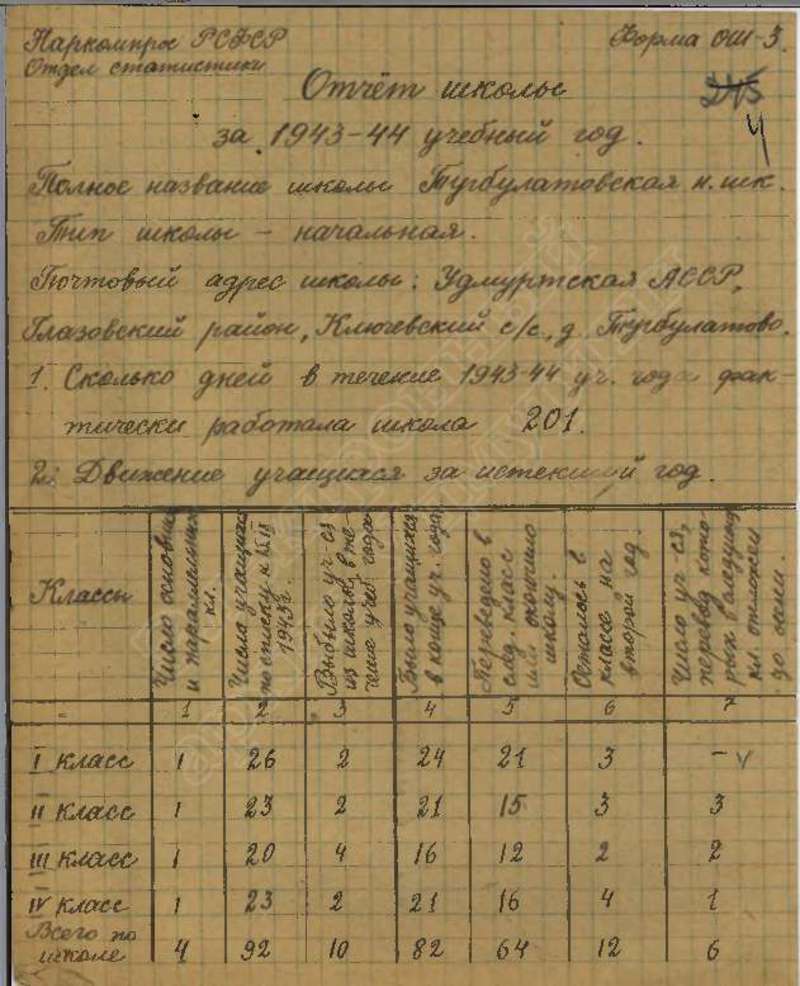 Наркомпрос РСФСР
Отдел статистики
Форма ОШ-3.
Отчёт школы
4
за 1943-44 учебный год.
Полное название школы Тугбулатовская н. шк.
Тип школы - начальная.
Почтовый адрес школы: Удмуртская АССР,
Глазовский район, Ключевский с/с, д. Тугбулатово.
1. Сколько дней в течение 1943-44 уч. года фак-
тически работала школа 201.
2. Движение учащихся за истекший год.
Классы
Число основных
и параллельных
кл.
Число учащихся
по списку к
1943 г.
Выбыло уч-ся
из школы в те-
чение учеб. года
Было учащихся
в конце уч. года
Переведено в
след. класс
или окончило
школу.
Осталось в
классе на
второй год.
Число уч-ся,
перевод кото-
рых в следующ.
кл. отложен
до осени.
1 2 3 4 5 6 7
I класс 1 26 2 24 21 3 - v
II класс 1 23 2 21 15 3 3
III класс 1 20 4 16 12 2 2
IV класс 1 23 2 21 16 4 1
Всего по
школе 4 92 10 82 64 12 6